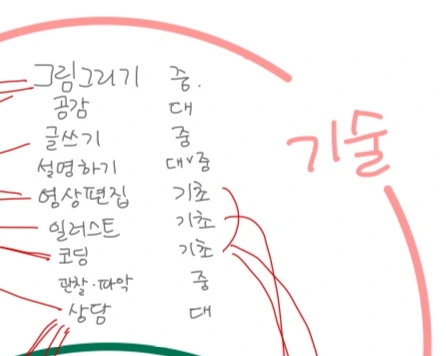 그림그리기 중.
공감 대
글쓰기 중
설명하기 대v중
영상편집 기초
일러스트 기초
코딩 기초
관찰·파악 중
상담 대
기술